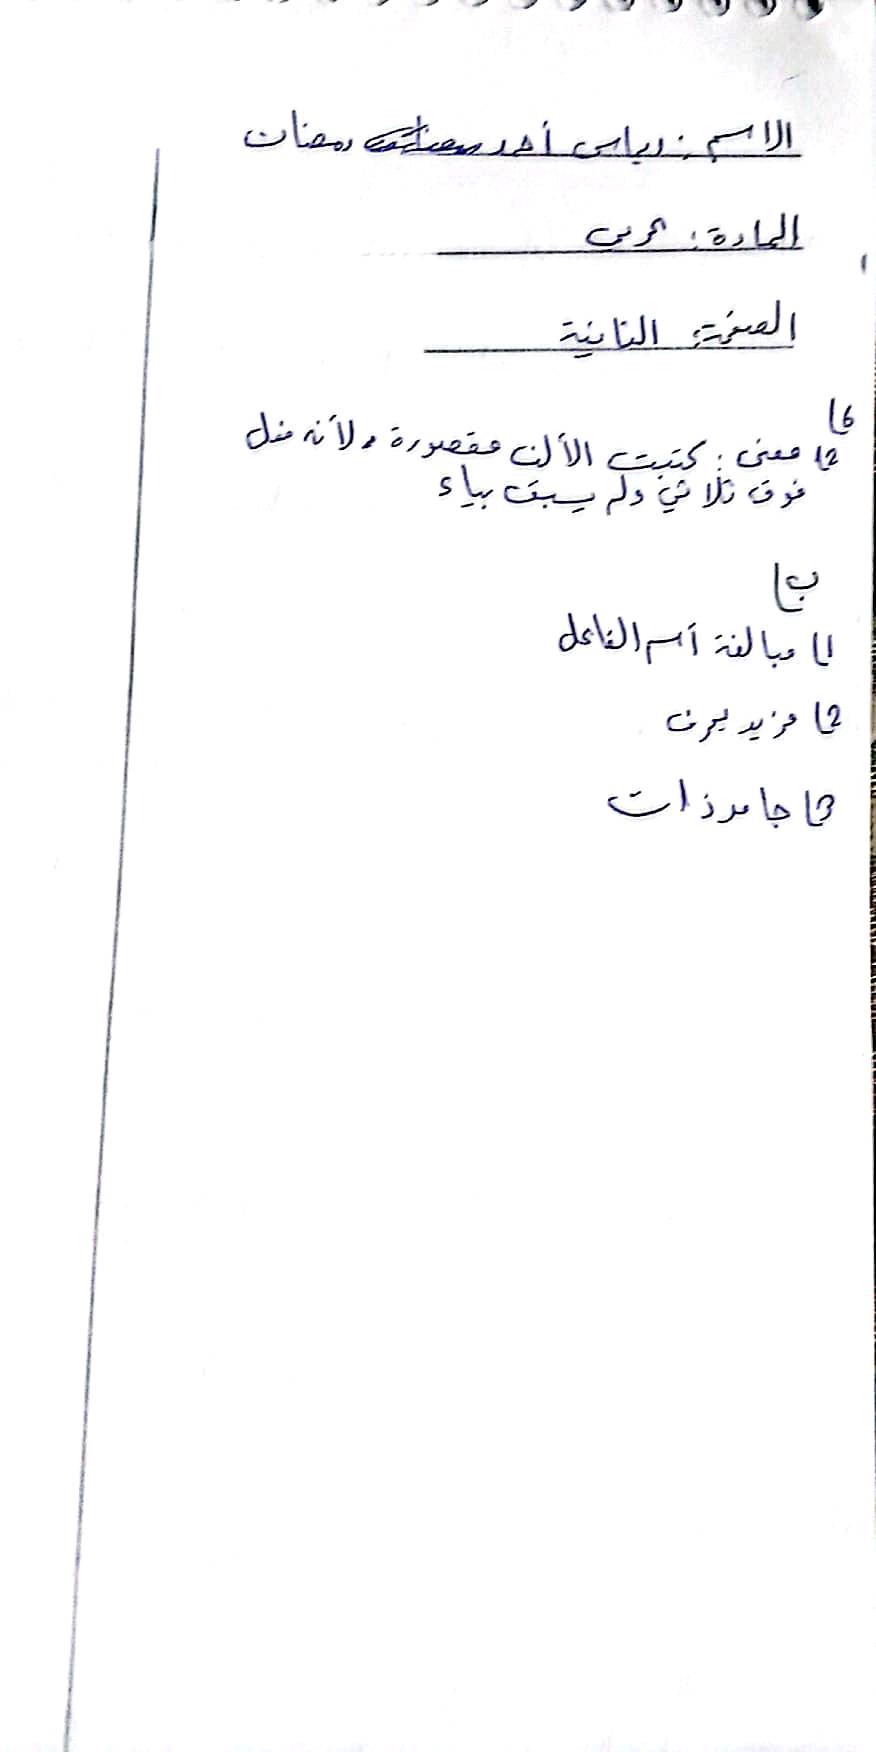 الاسم: لياس أحمد رمضان
المادة: عربي
الصفحة: الثانية
6)
2) معنى: كتبت الألف مقصورة ولأنه فعل
فوق ثلاثي ولم يسبق بياء
ب)
1) مبالغة أسم الفاعل
2) مزيد بحرف
3) جامد ذات